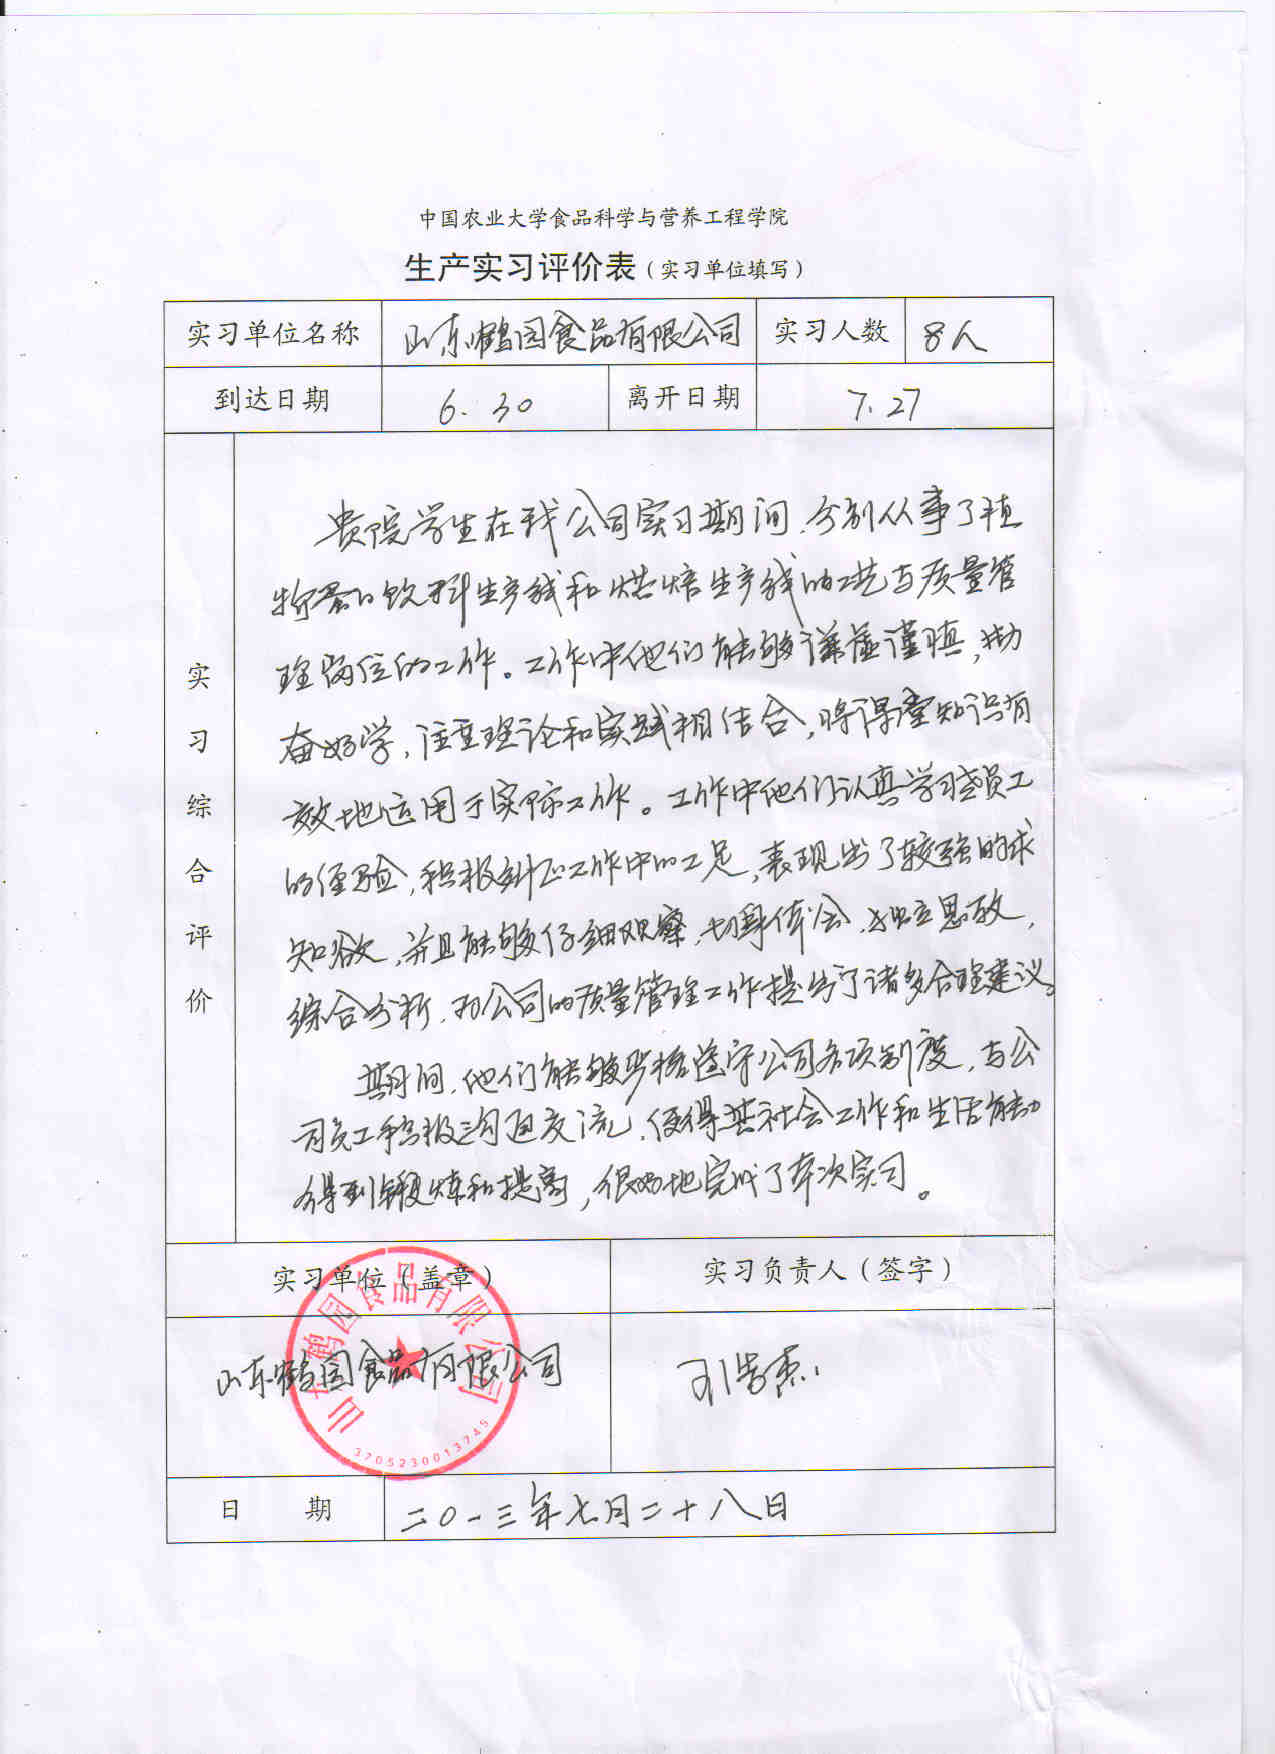 中国农业大学食品科学与营养工程学院
生产实习评价表（实习单位填写）
实习单位名称 山东鹤园食品有限公司 实习人数 8人
到达日期 6.30 离开日期 7.27
实习综合评价
贵院学生在我公司实习期间，分别从事了植
物蛋白饮料生产线和烘焙生产线的工艺与质量管
理岗位的工作。工作中他们能够谦虚谨慎，勤
奋好学，注重理论和实践相结合，将课堂知识有
效地运用于实际工作。工作中他们认真学习老员工
的经验，积极纠正工作中的不足，表现出了较强的求
知欲，并且能够仔细观察，切身体会，独立思考，
综合分析，对公司的质量管理工作提出了诸多合理建议。
期间，他们能够严格遵守公司各项制度，与公
司员工积极沟通交流，使得其社会工作和生活能力
得到锻炼和提高，很好地完成了本次实习。
实习单位（盖章） 实习负责人（签字）
山东鹤园食品有限公司
山东鹤园食品有限公司
3705230013745
日期 二〇一三年七月二十八日